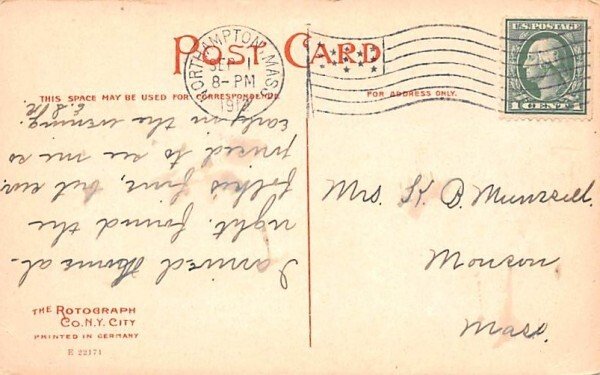 POST CARD
NORTHAMPTON, MASS.
SEP 1
8-PM
U.S. POSTAGE
1 CENT 1
THIS SPACE MAY BE USED FOR CORRESPONDENCE
FOR ADDRESS ONLY.
I arrived home al-
right. found the
folks fine, but sur-
prised to see me so
early in the evening.
Mrs. H. B. Munsell.
Monson
Mass.
THE ROTOGRAPH
CO. N.Y. CITY
PRINTED IN GERMANY
E 22171